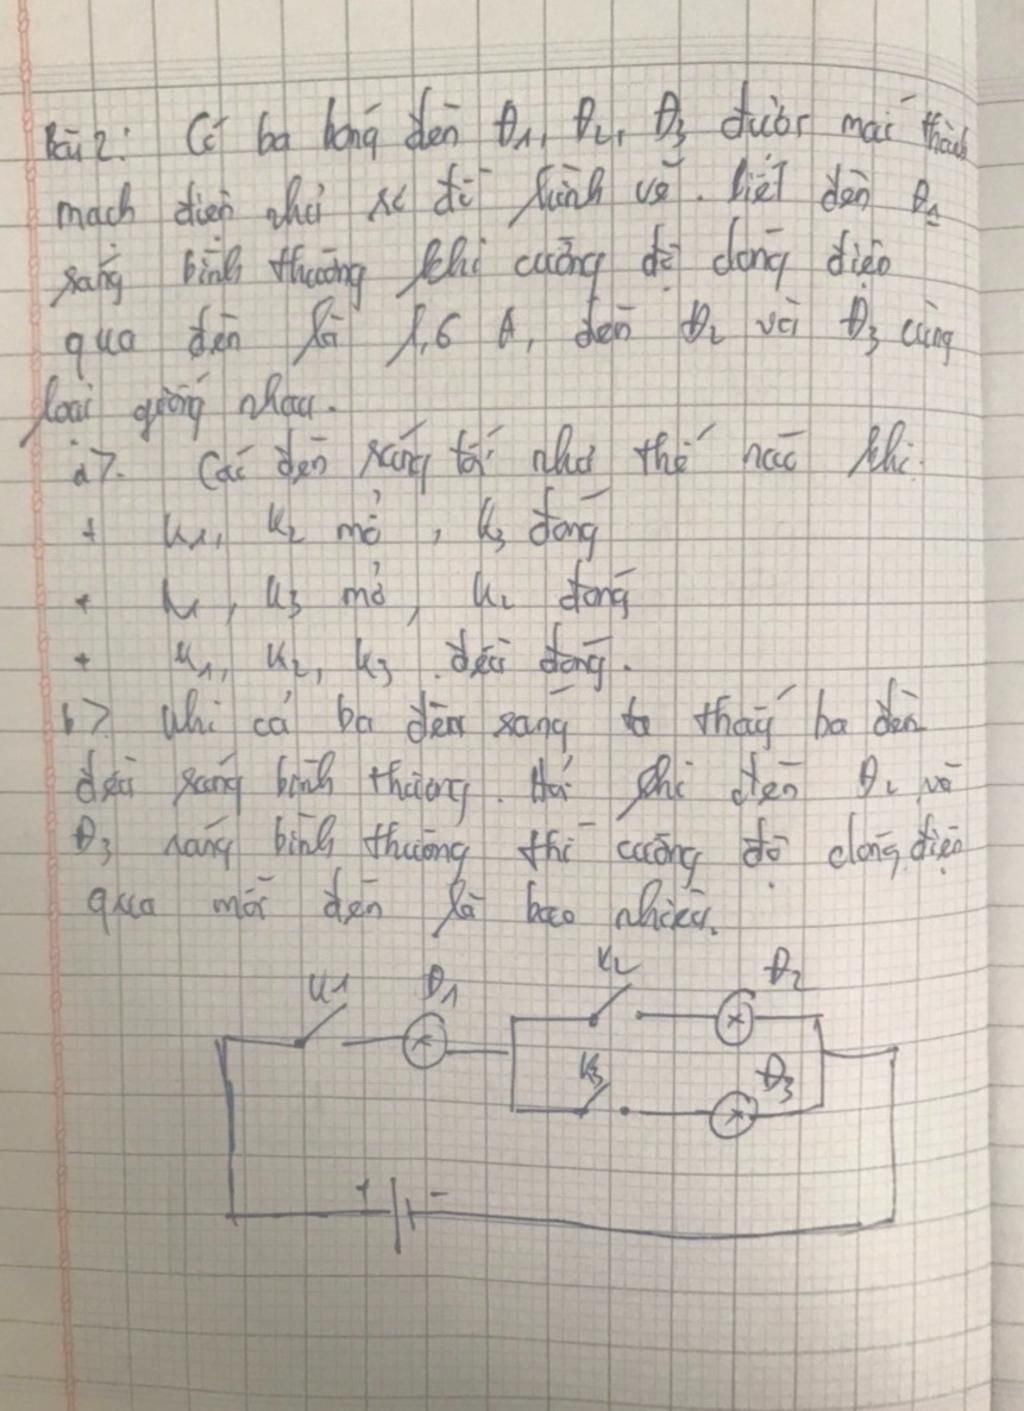 Bài 2: Có ba bóng đèn Đ1, Đ2, Đ3 được mắc thành
mạch điện như sơ đồ hình vẽ. Biết đèn Đ1
sáng bình thường khi cường độ dòng điện
qua đèn là 1,6 A, đèn Đ2 và Đ3 cùng
loại giống nhau.
a>. Các đèn sáng tắt như thế nào khi:
+ K1, K2 mở, K3 đóng
+ K1, K3 mở, K2 đóng
+ K1, K2, K3 đều đóng.
b> Khi cả ba đèn sáng ta thấy ba đèn
đều sáng bình thường. Hỏi khi đèn Đ2 và
Đ3 sáng bình thường thì cường độ dòng điện
qua mỗi đèn là bao nhiêu.
K1 Đ1 K2 Đ2
K3 Đ3
+ -